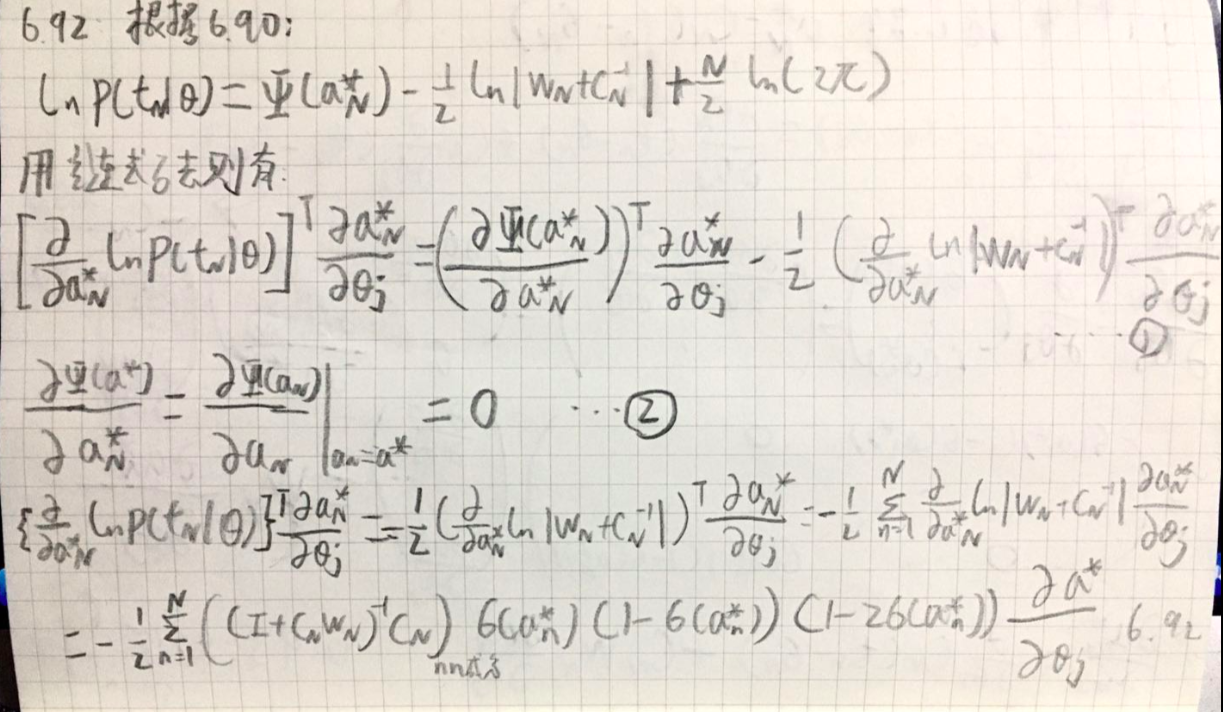 6.92 根据6.90:
ln P(t_N|θ) = Ψ(a*_N) - 1/2 ln|W_N+C_N^{-1}| + N/2 ln(2π)
用链式法则有:
[∂/∂a*_N ln P(t_N|θ)]^T ∂a*_N/∂θ_j = (∂Ψ(a*_N)/∂a*_N)^T ∂a*_N/∂θ_j - 1/2 (∂/∂a*_N ln|W_N+C_N^{-1}|)^T ∂a*_N/∂θ_j
……①
∂Ψ(a*)/∂a*_N = ∂Ψ(a_N)/∂a_N |_{a_n=a*} = 0 …②
{∂/∂a*_N ln P(t_N|θ)}^T ∂a*_N/∂θ_j = -1/2 (∂/∂a*_N ln|W_N+C_N^{-1}|)^T ∂a*_N/∂θ_j = -1/2 Σ_{n=1}^{N} ∂/∂a*_N ln|W_N+C_N^{-1}| ∂a*_N/∂θ_j
= -1/2 Σ_{n=1}^{N} ((I+C_N W_N)^{-1} C_N)_{nn} σ(a*_n) (1-σ(a*_n)) (1-2σ(a*_n)) ∂a*/∂θ_j 6.92